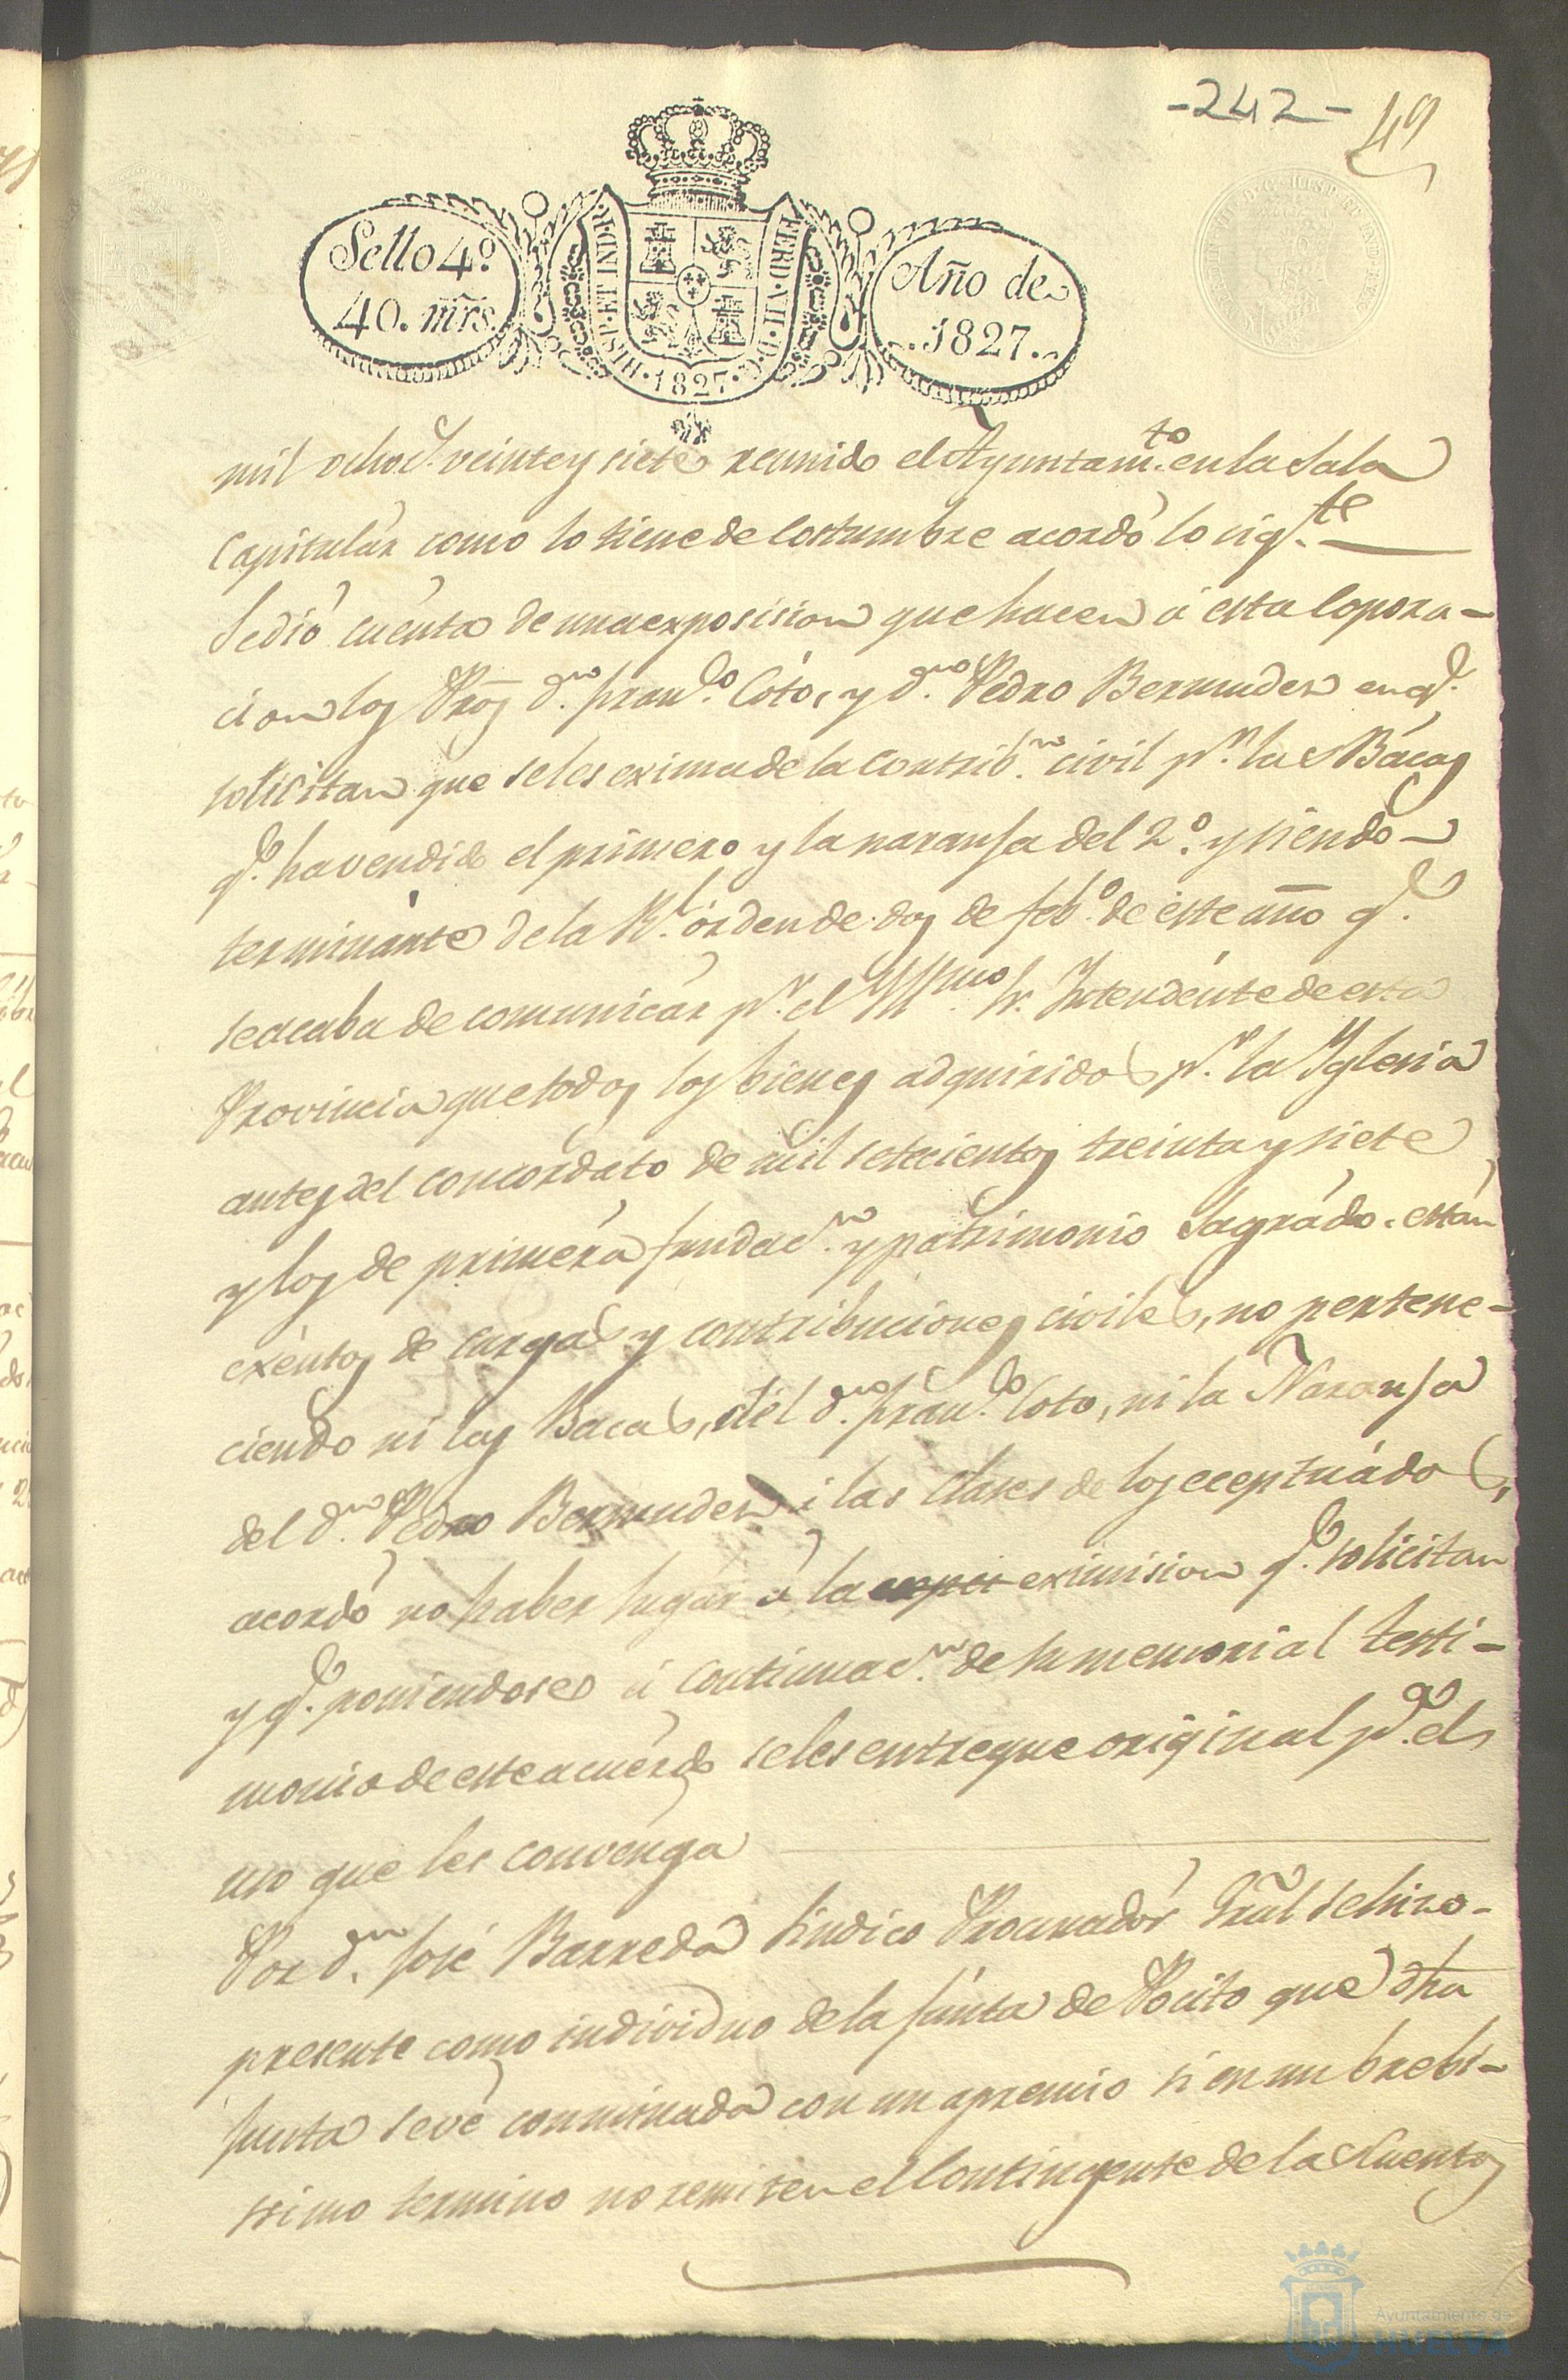 -242- 49
Sello 4º.
40. mrs.
HISP. ET IND. R. FERD. VII. D. G. 1827.
Año de
1827.
mil ochoc.s veinte y siete reunido el Ayuntam.to en la Sala
Capitulár como lo tiene de Costumbre acordó lo sig.te
Se dió cuénta de una exposision que hacen á esta Copora-
cion los Pros d.n Fran.co Cóto, y d.n Pedro Bermudes en q.e
solicitan que se les exima de la Contrib.n civil p.r las Bacas
q.e ha vendido el primero y la naranja del 2.º y siendo
terminánte de la R.l órden de dos de feb.o de éste año q.e
se acaba de comunicár p.r el Yllmo Sr. Yntendénte de esta
Provincia que todos los bienes adquiridos p.r la Yglesia
antes del concordáto de mil setecientos treinta y siete
y los de priméra fundac.n y patrimonio Sagrádo. están
exéntos de cargas y contribuciónes civiles, no pertene-
ciendo ni las Bacas, del d.n Fran.co Coto, ni la Naranja
del d.n Pedro Bermudes á las clases de los eceptuádos,
acordó no haber lugár á la eximision q.e solicitan
y q.e poniendose á continuac.n de su memorial testi-
monio de este acuérdo se les entregue original p.a el
uso que les convénga
Por d.n José Barreda Sindico Procuradór Gral se hizo-
presente como individuo de la Júnta de Pocito que dha
Junta se vé conminada con un apremio si en un brebi-
simo termino no remiten el Contingente de las Cuentas
Ayuntamiento de
HUELVA